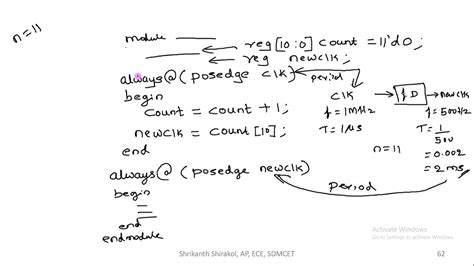 n=11
module
reg [10:0] count = 11'd0;
reg newclk;
always@(posedge clk)
begin
count = count + 1;
newclk = count[10];
end
always@(posedge newclk)
begin
end
endmodule
period
clk
f=1MHz
T=1μs
f D
newclk
f=500Hz
T=1/500
=0.002
=2ms
n=11
Period
Activate Windows
Go to Settings to activate Windows.
Shrikanth Shirakol, AP, ECE, SDMCET
62